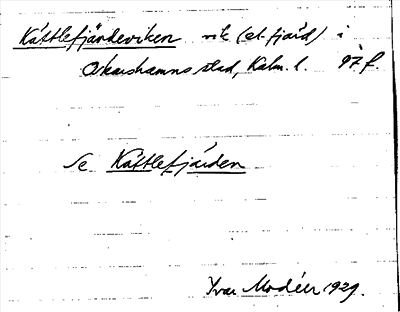 Kättlefjärdeviken vik (el. fjärd) i
Oskarshamns stad, Kalm. l. 97. f.
Se Kättlefjärden
Ivar Modéer 1929.